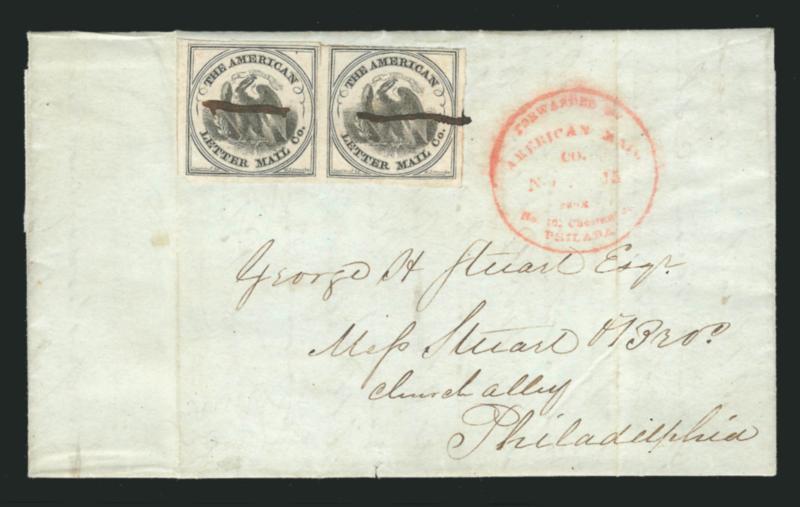 THE AMERICAN
LETTER MAIL Co.
THE AMERICAN
LETTER MAIL Co.
FORWARDED BY
AMERICAN MAIL
CO.
15
FROM
No. Chesnut St
PHILADA
George H Stuart Esqr
Mess Stuart & Bro
Church alley
Philadelphia